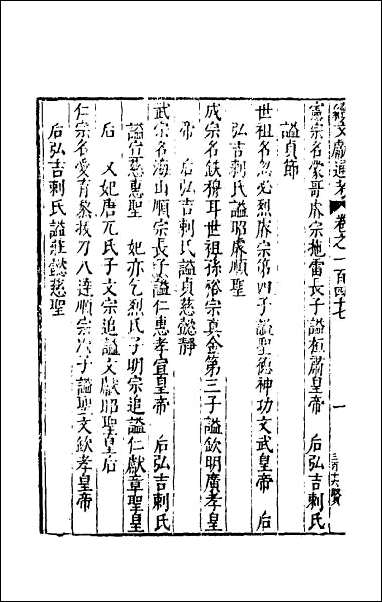 續文獻通考 卷之一百四十七 一
憲宗名蒙哥睿宗拖雷長子謚桓肅皇帝 后弘吉剌氏
謚貞節
世祖名忽必烈睿宗第四子謚聖德神功文武皇帝 后
弘吉剌氏謚昭睿順聖
成宗名鉄穆耳世祖孫裕宗真金第三子謚欽明廣孝皇
帝 后弘吉剌氏謚貞慈懿靜
武宗名海山順宗長子謚仁惠宣孝皇帝 后弘吉剌氏
謚宣慈惠聖 妃亦乞烈氏子明宗追謚仁獻章聖皇
后 又妃唐兀氏子文宗追謚文獻昭聖皇后
仁宗名愛育黎拔力八達順宗次子謚聖文欽孝皇帝
后弘吉剌氏謚莊懿慈聖